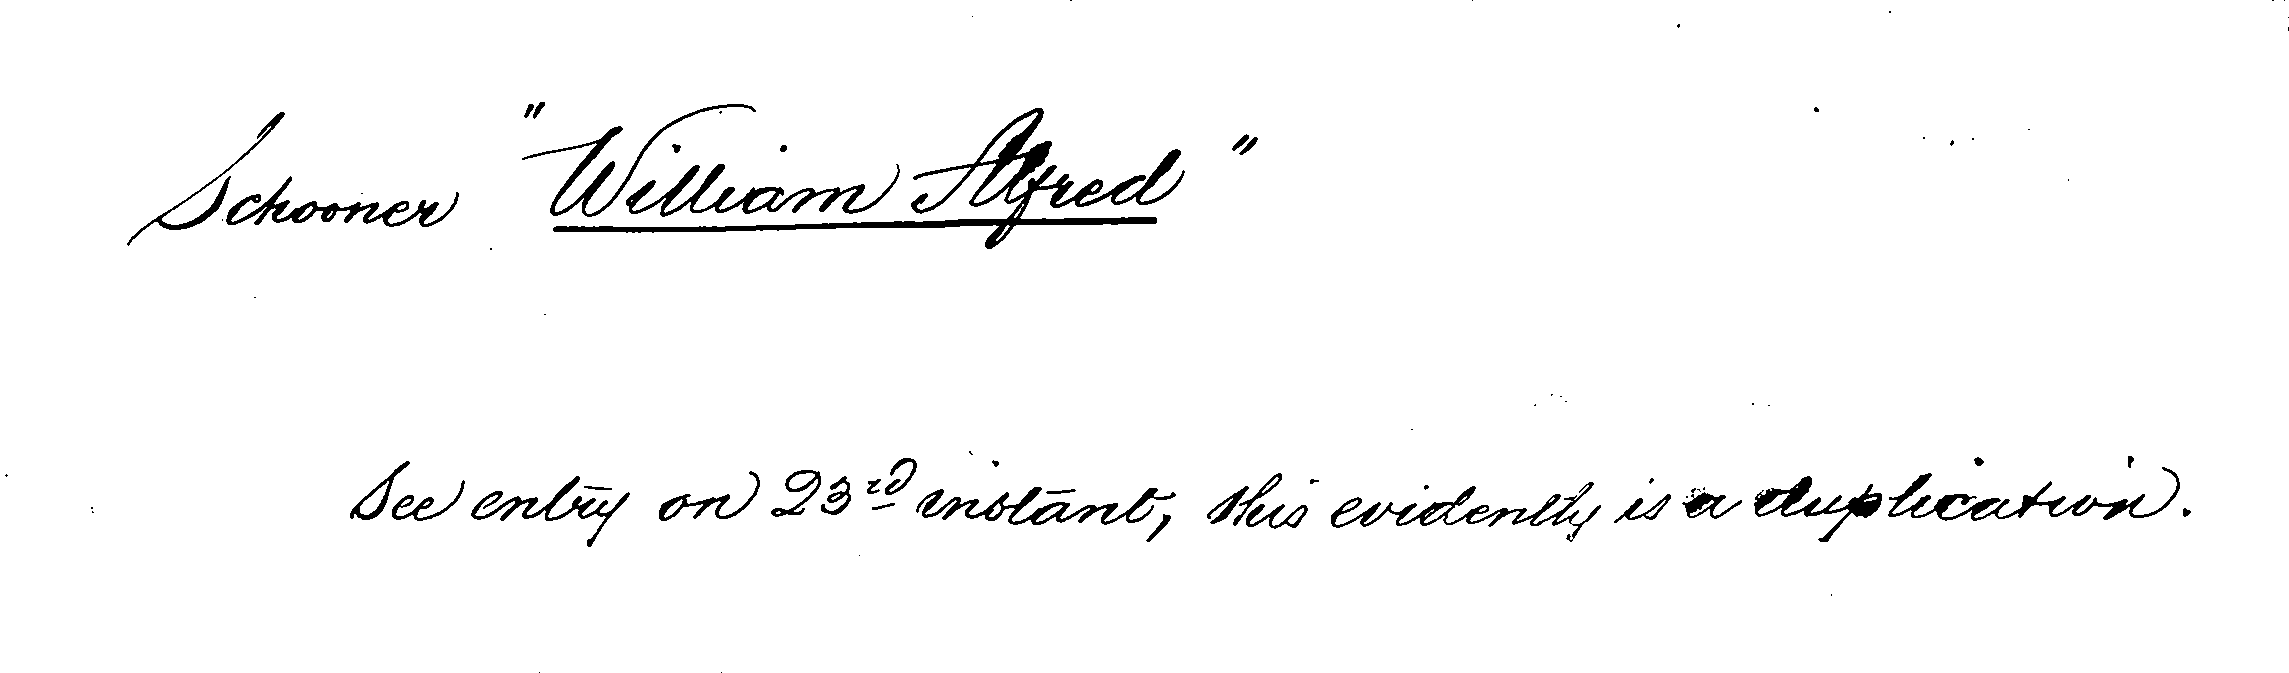 Schooner "William Alfred"
See entry on 23rd instant, this evidently is a duplication.